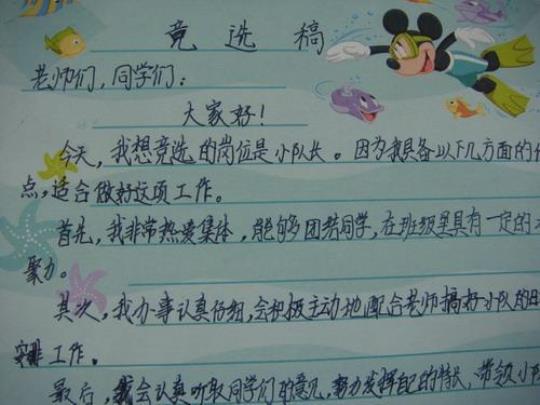 竞选稿
老师们，同学们：
大家好！
今天，我想竞选的岗位是小队长。因为我具备以下几方面的
点，适合做好这项工作。
首先，我非常热爱集体，能够团结同学，在班级里具有一定的
聚力。
其次，我办事认真仔细，会积极主动地配合老师搞好小队的
安排工作。
最后，我会认真听取同学们的意见，努力发挥自己的特长，带领小队